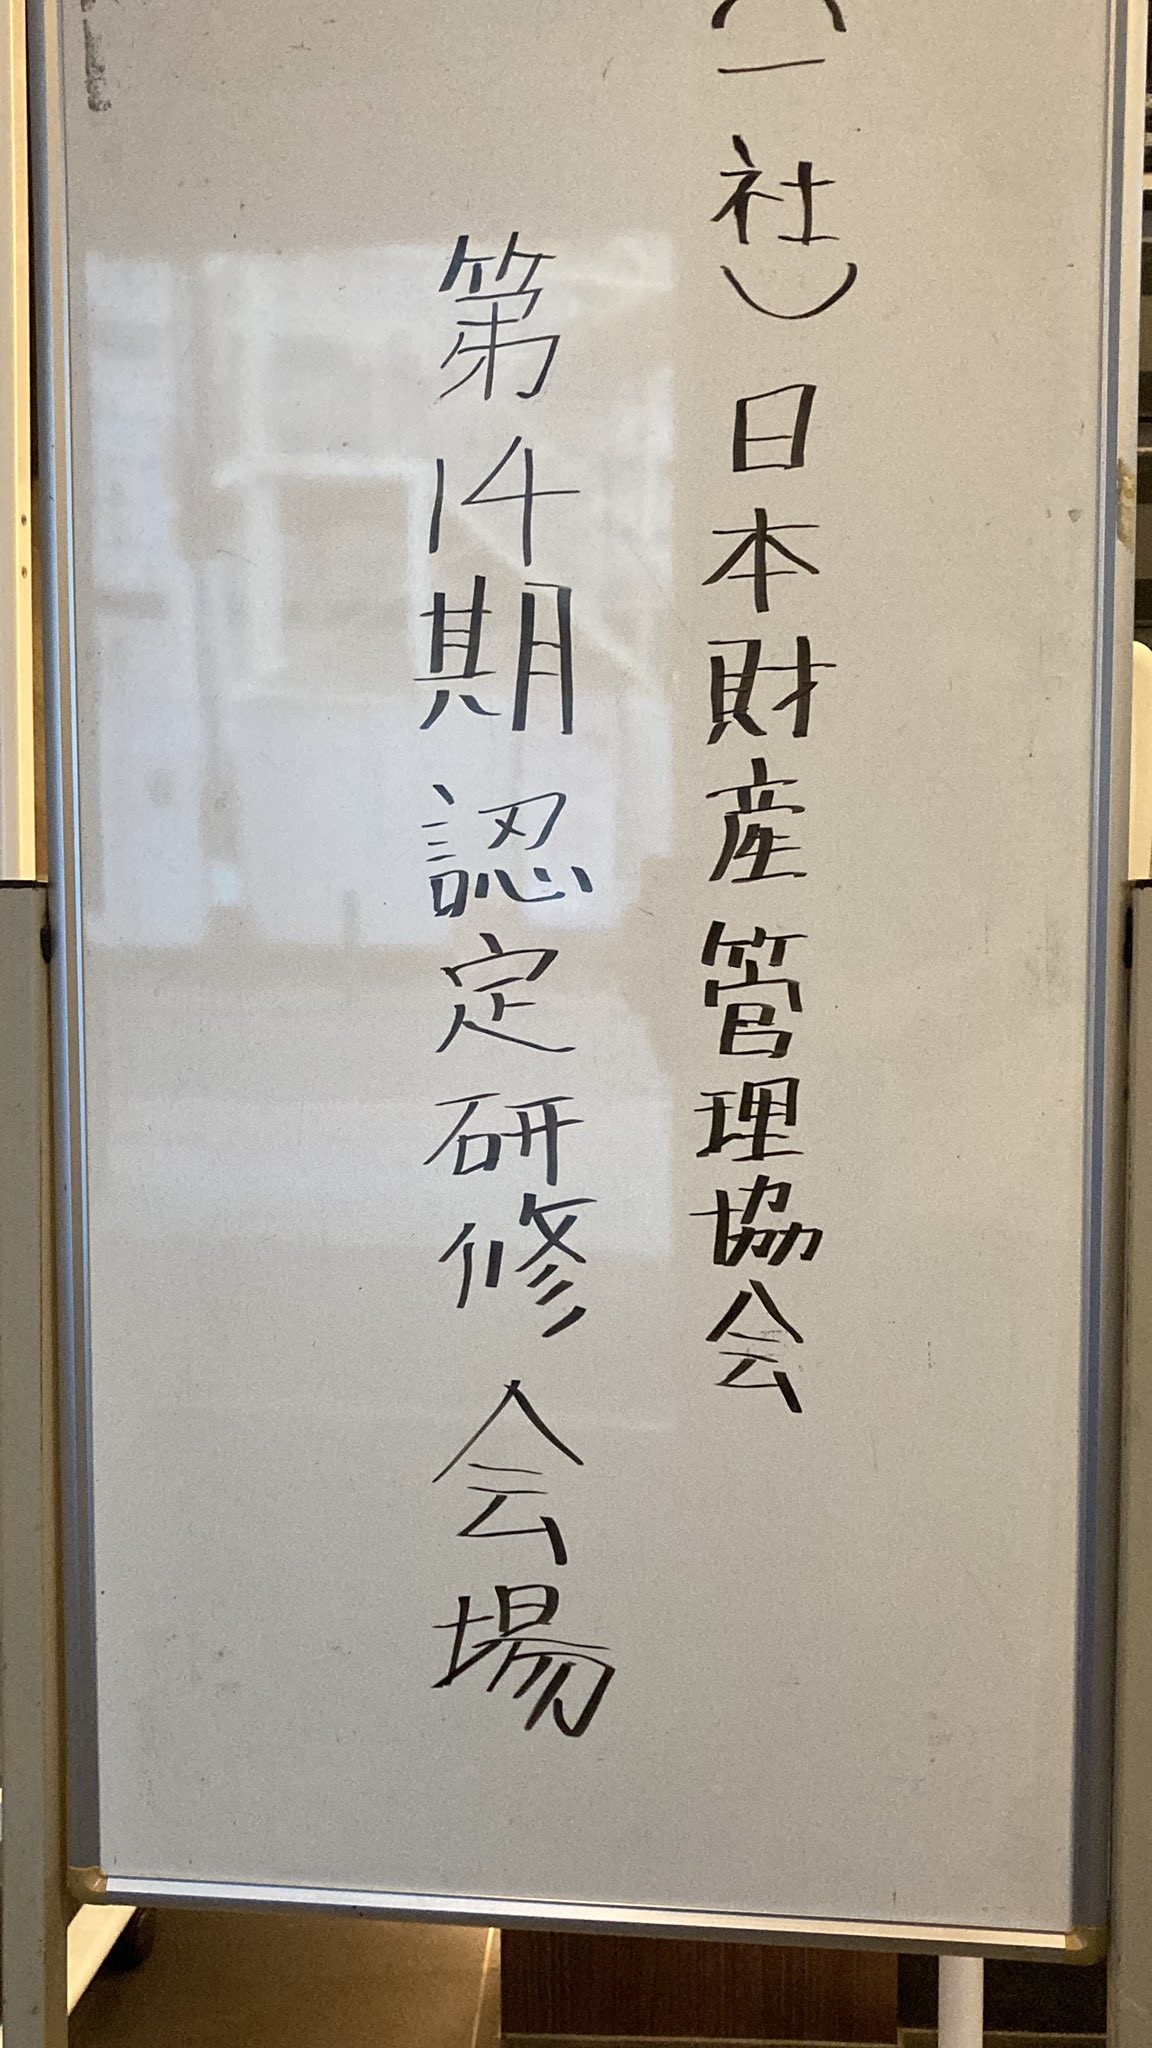 （一社）日本財産管理協会
第14期認定研修会場